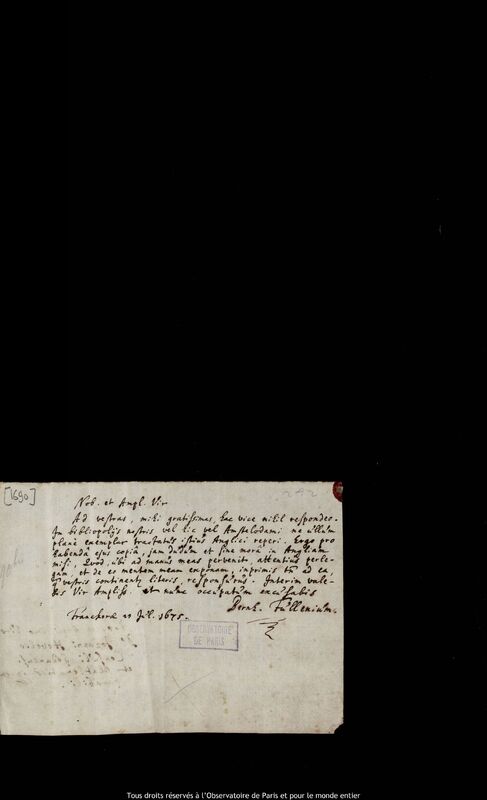 [1690]
242
Nob. et Ampl. Vir
Ad vestras, mihi gratissimas, hac vice nihil respondeo.
In bibliopolijs nostris vel hic vel Amstelodami ne ullum
plane exemplar tractatus istius Anglici reperi. Ergo pro
habenda ejus copia, jam dudum et sine mora in Angliam
misi. Quod, ubi ad manus meas pervenit, attentius perle-
gam, et de eo mentem meam exponam, inprimis tum ad ea,
vestris continent literis, responsurus. Interim vale-
bis Vir Ampliss. et nunc occupatum excusabis
Bernh. Fullenium.
Franekerae 21 Jul. 1675.
OBSERVATOIRE
DE PARIS
Tous droits réservés à l'Observatoire de Paris et pour le monde entier